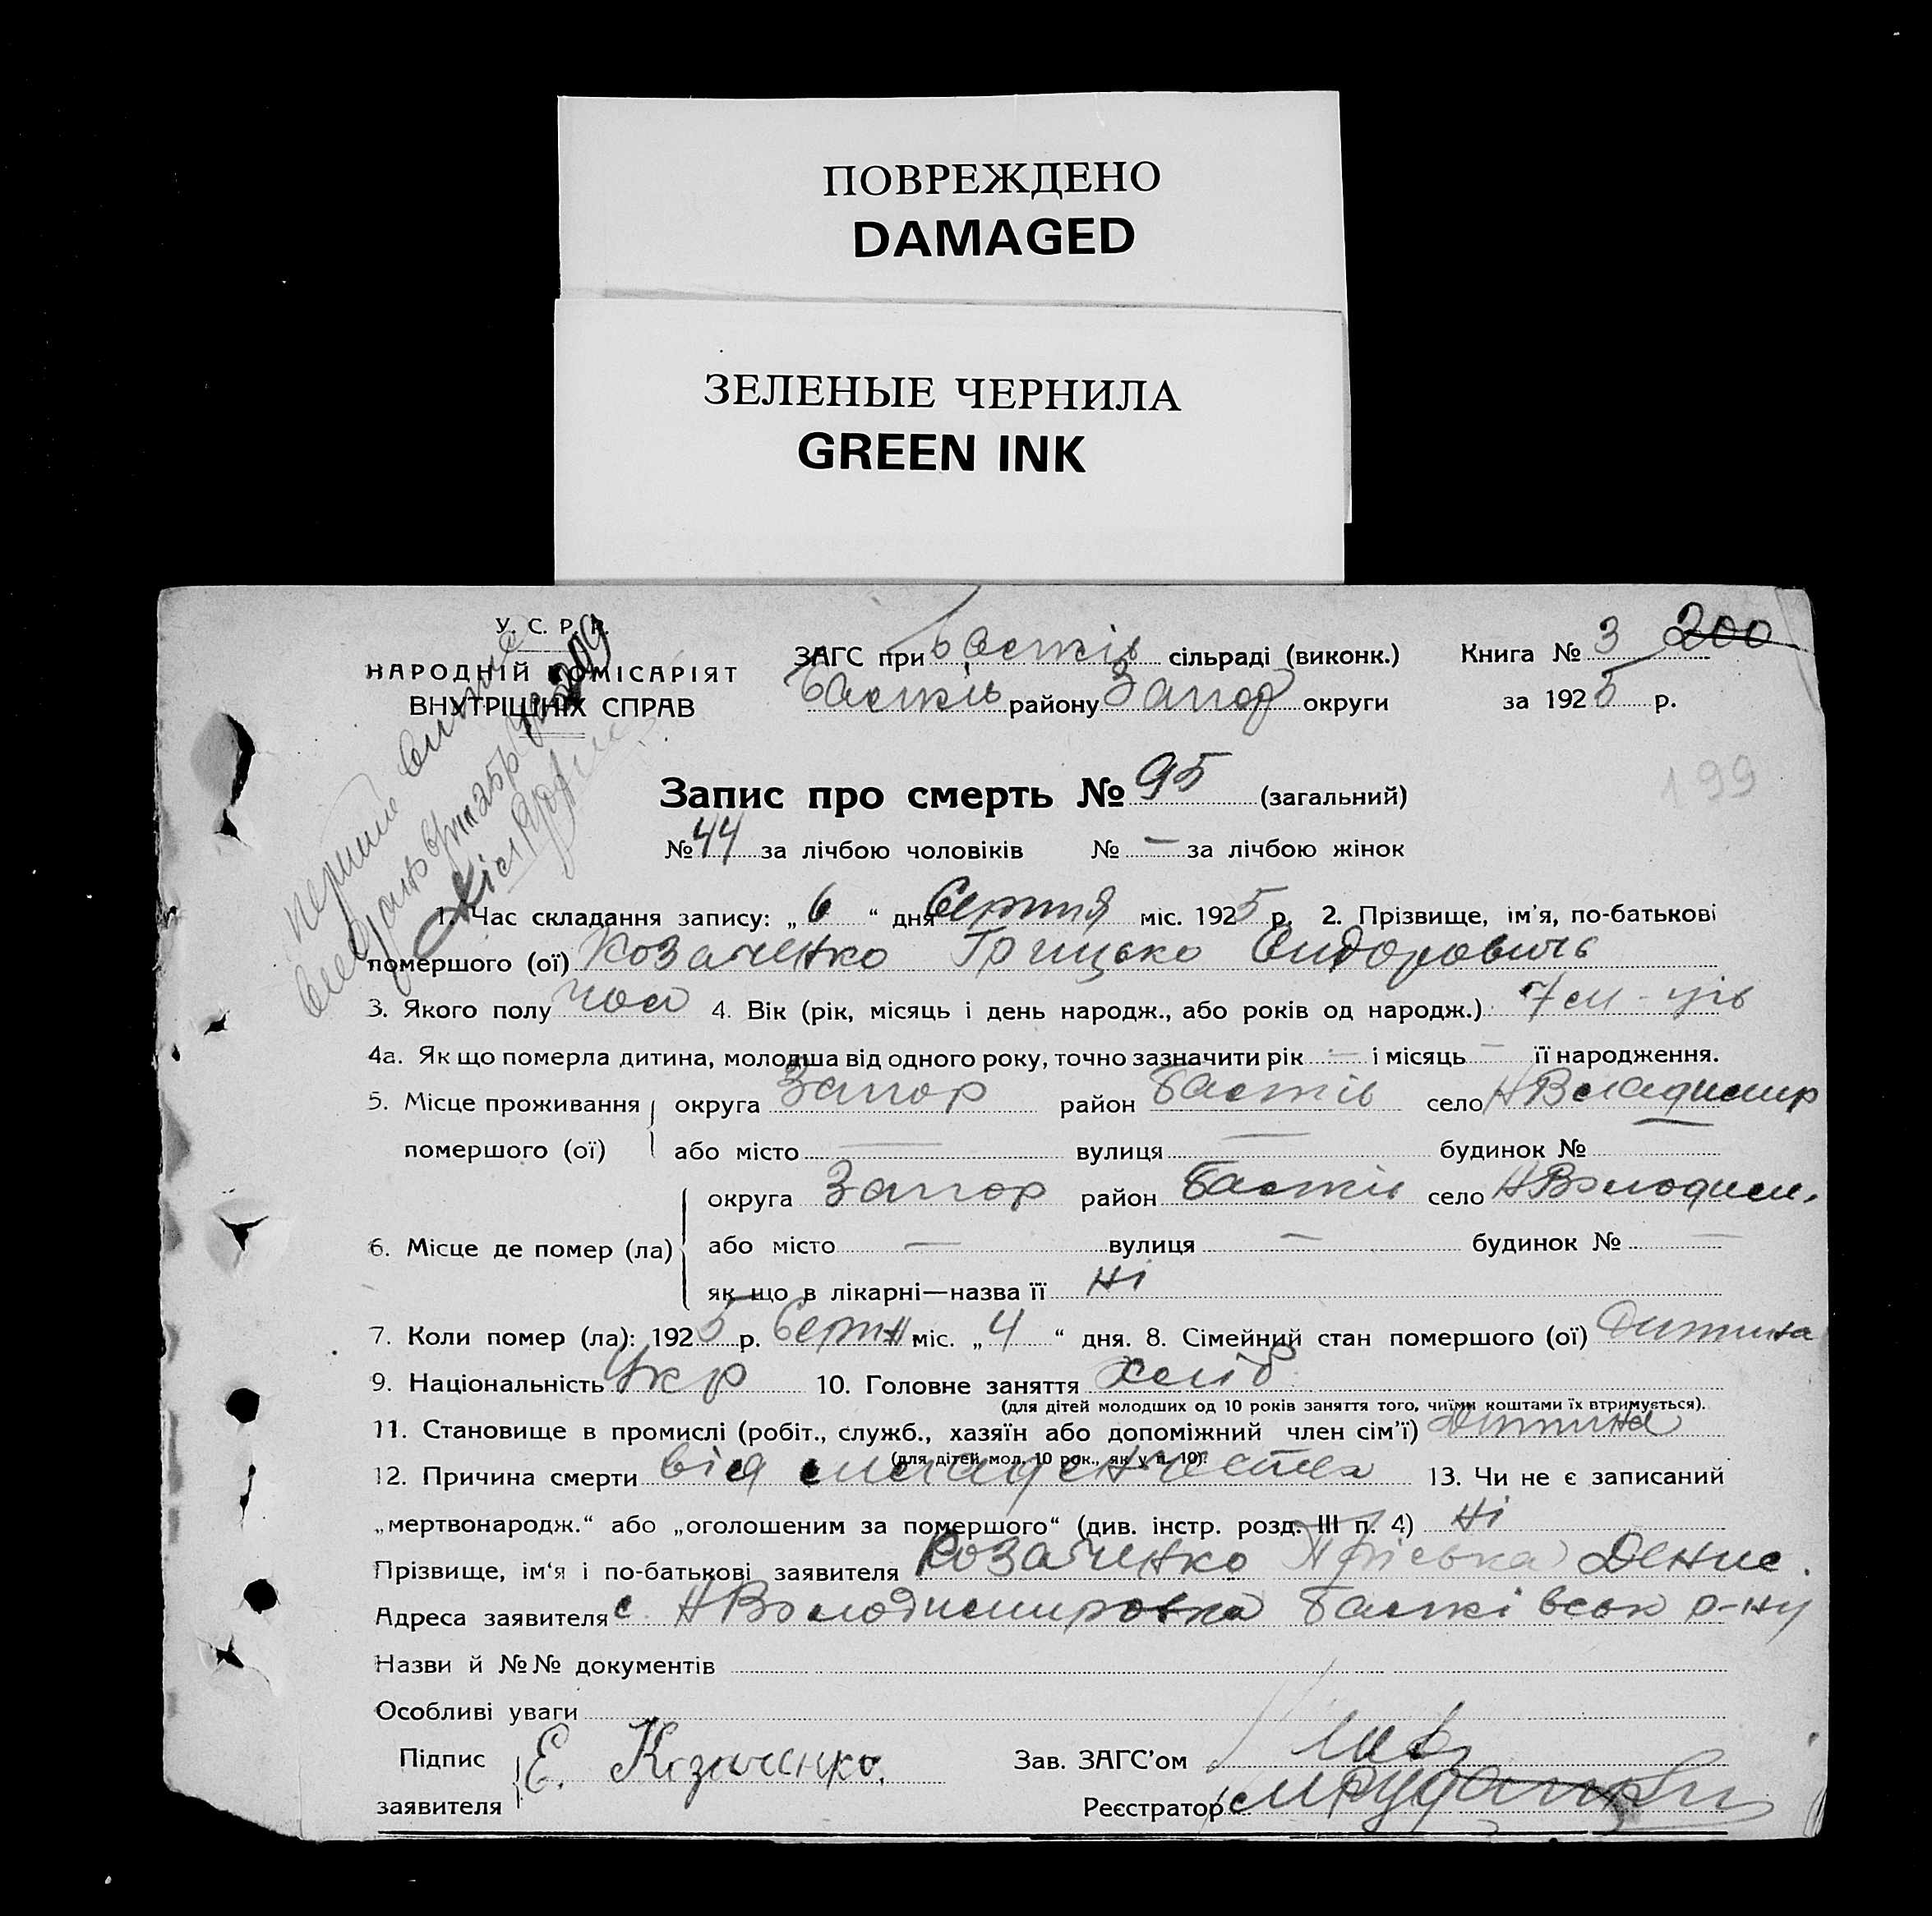 ПОВРЕЖДЕНО
DAMAGED
ЗЕЛЕНЫЕ ЧЕРНИЛА
GREEN INK
У. С. Р. Р.
НАРОДНІЙ КОМІСАРІЯТ
ВНУТРІШНІХ СПРАВ
ЗАГС при сільраді (виконк.) Книга № 3 200
району Запор округи за 1925 р.
199
Запис про смерть № 95 (загальний)
№ 44 за лічбою чоловіків № — за лічбою жінок
1. Час складання запису: „6“ дня Серпня міс. 1925 р. 2. Прізвище, ім'я, по-батькові
помершого (ої) Козаченко Грицько Сидоровичь
3. Якого полу чол 4. Вік (рік, місяць і день народж., або років од народж.) 7 м-ців
4а. Як що померла дитина, молодша від одного року, точно зазначити рік — і місяць — її народження.
5. Місце проживання округа Запор район село Н Владимир
помершого (ої) або місто — вулиця — будинок №
округа Запор район село Н Володим.
6. Місце де помер (ла) або місто — вулиця — будинок № —
як що в лікарні—назва її Ні
7. Коли помер (ла): 1925 р. Серпн міс. „4“ дня. 8. Сімейний стан помершого (ої) Дитина
9. Національність Укр 10. Головне заняття хліб
(для дітей молодших од 10 років заняття того, чиїми коштами їх втримується).
11. Становище в промислі (робіт., служб., хазяїн або допоміжний член сім'ї) Дитина
(для дітей мол. 10 рок., як у п. 10).
12. Причина смерти від младенчества 13. Чи не є записаний
„мертвонародж.“ або „оголошеним за помершого“ (див. інстр. розд. III п. 4) Ні
Прізвище, ім'я і по-батькові заявителя Козаченко Пріська Денис.
Адреса заявителя с. Н Володимировка р-ну
Назви й №№ документів
Особливі уваги
Підпис Е. Козаченко. Зав. ЗАГС'ом
заявителя Реєстратор